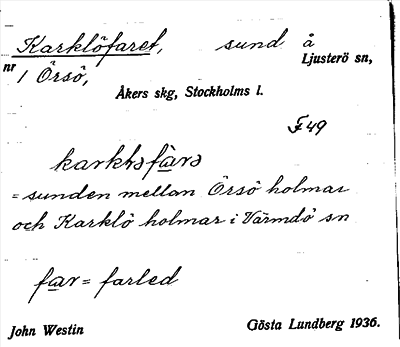 Karklöfaret, sund å
Ljusterö sn,
nr 1 Örsö,
Åkers skg, Stockholms l.
F 49
= sunden mellan Örsö holmar
och Karklö holmar i Värmdö sn
far = farled
John Westin
Gösta Lundberg 1936.